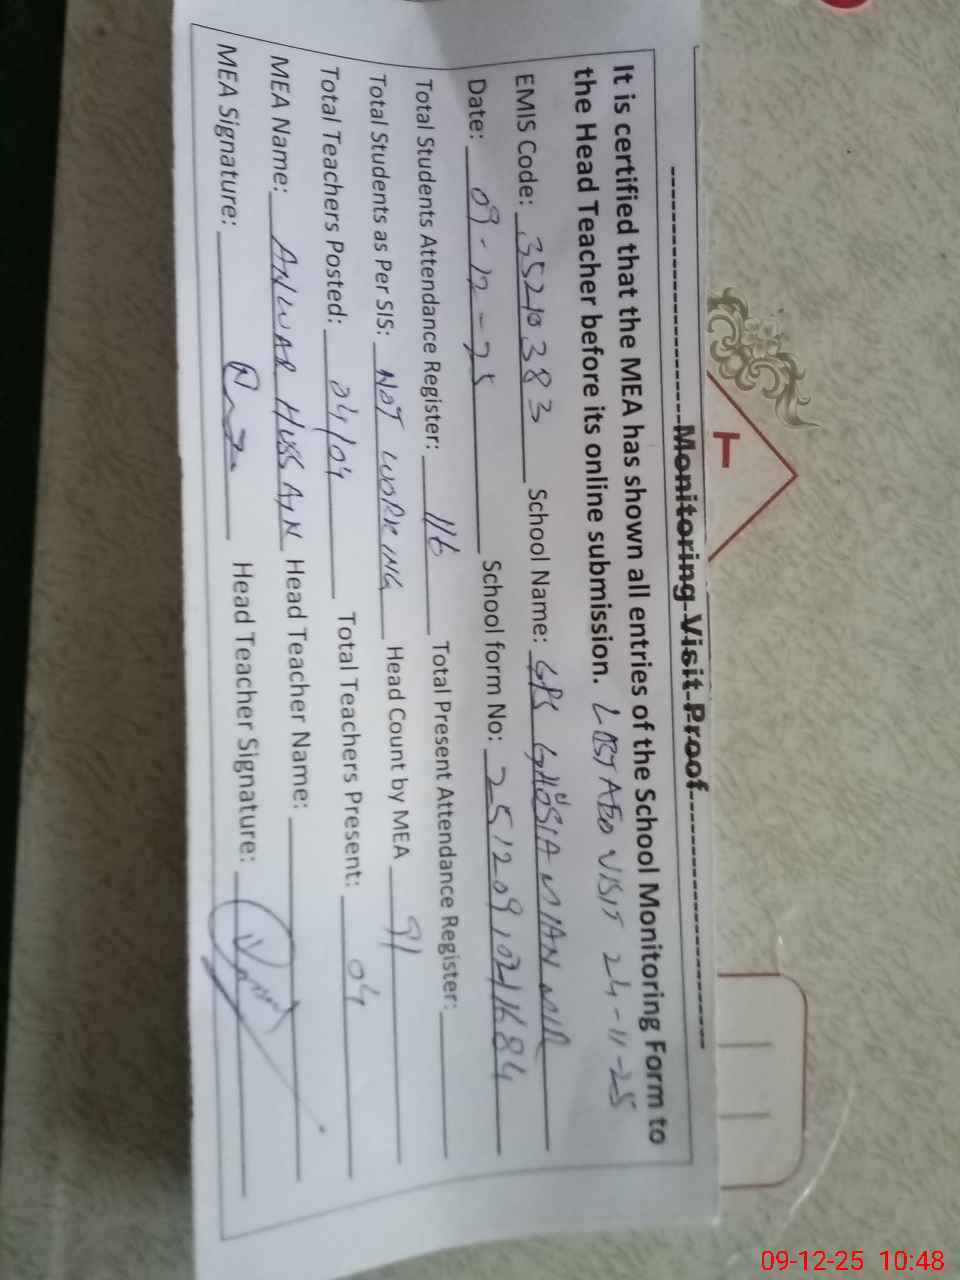 Monitoring Visit Proof
It is certified that the MEA has shown all entries of the School Monitoring Form to
the Head Teacher before its online submission. VISIT 24-11-25
EMIS Code: 35210383 School Name: GPS GHOSIA MIAN MIR
Date: 09-12-25 School form No:
Total Students Attendance Register: 116 Total Present Attendance Register:
Total Students as Per SIS: NOT WORKING Head Count by MEA 91
Total Teachers Posted: 04/04 Total Teachers Present: 04
MEA Name: ANWAR HUSSAIN Head Teacher Name:
MEA Signature: Head Teacher Signature:
09-12-25 10:48